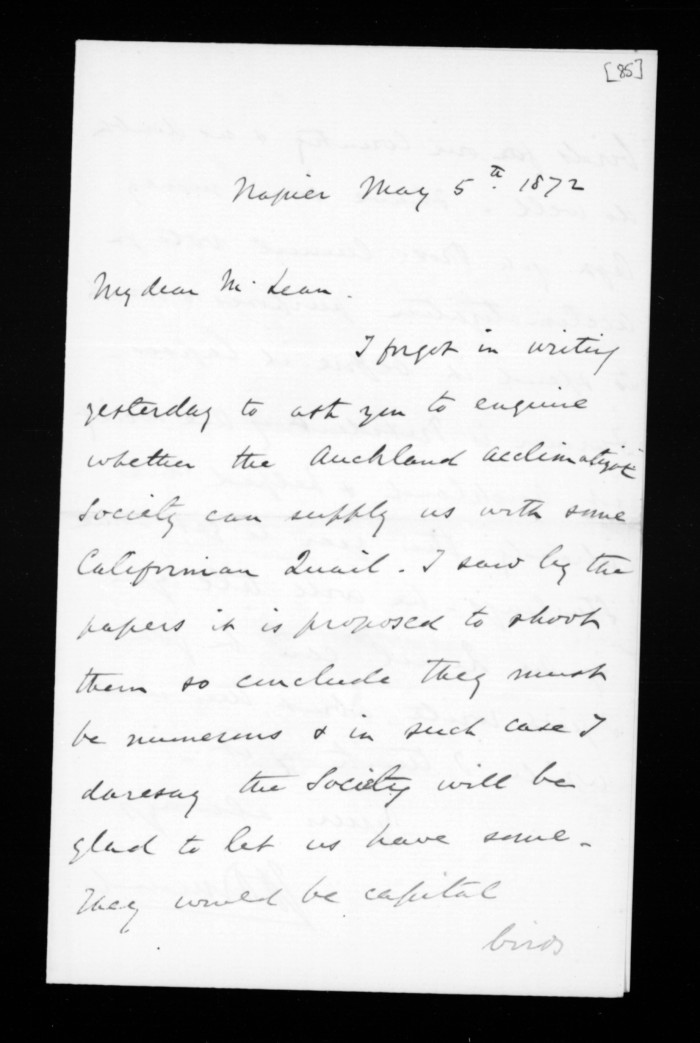 [85]
Napier May 5th. 1872
My dear McLean.
I forgot in writing
yesterday to ask you to enquire
whether the Auckland Acclimatizat
Society can supply us with some
Californian Quail. I saw by the
papers it is proposed to shoot
them so conclude they must
be numerous & in such case I
daresay the Society will be
glad to let us have some.
They would be capital
birds